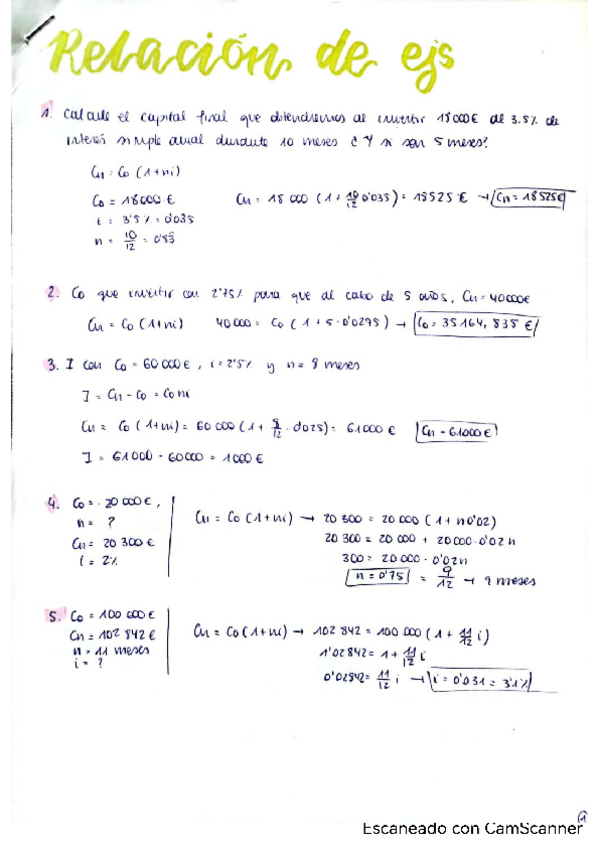 Relación de ejs
1. Calcule el capital final que obtendremos al invertir 18000€ al 3.5% de
interés simple anual durante 10 meses ¿Y si son 5 meses?
Cn = Co (1+ni)
Co = 18000 €
Cn = 18 000 (1 + 10/12 0'035) = 18525 € → Cn = 18525€
i = 3'5% = 0'035
n = 10/12 = 0'83
2. Co que invertir con 2'75% para que al cabo de 5 años, Cn = 40000€
Cn = Co (1+ni) 40000 = Co (1 + 5·0'0275) → Co = 35164,835 €
3. I con Co = 60000€, i = 2'5% y n = 8 meses
I = Cn - Co = Co ni
Cn = Co (1+ni) = 60 000 (1 + 8/12 · 0'025) = 61000 € Cn = 61000€
I = 61000 - 60000 = 1000 €
4. Co = 20 000 €,
n = ?
Cn = 20 300 €
i = 2%
Cn = Co (1+ni) → 20 300 = 20 000 (1 + n 0'02)
20 300 = 20 000 + 20000·0'02 n
300 = 20 000 · 0'02n
n = 0'75 = 9/12 → 9 meses
5. Co = 100 000 €
Cn = 102 842 €
n = 11 meses
i = ?
Cn = Co (1+ni) → 102 842 = 100 000 (1 + 11/12 i)
1'02842 = 1 + 11/12 i
0'02842 = 11/12 i → i = 0'031 = 3'1%
1
Escaneado con CamScanner